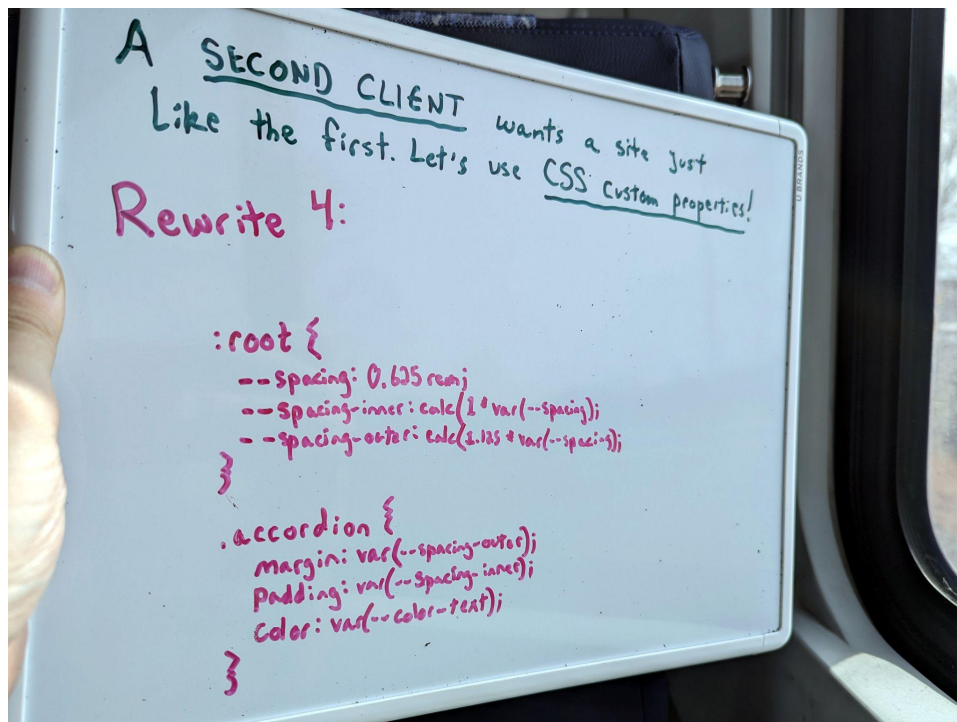 A SECOND CLIENT wants a site just
Like the first. Let's use CSS custom properties!
Rewrite 4:
:root {
--spacing: 0.625rem;
--spacing-inner: calc(1 * var(--spacing);
--spacing-outer: calc(1.125 * var(--spacing);
}
.accordion {
margin: var(--spacing-outer);
padding: var(--spacing-inner);
color: var(--color-text);
}
U BRANDS